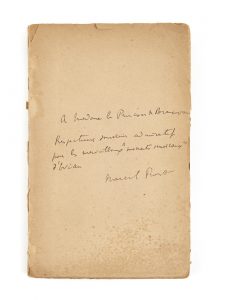 A Madame la Princesse de Brancovan
Respectueux souvenir admiratif
pour les merveilleux
d'Evian
Marcel Proust